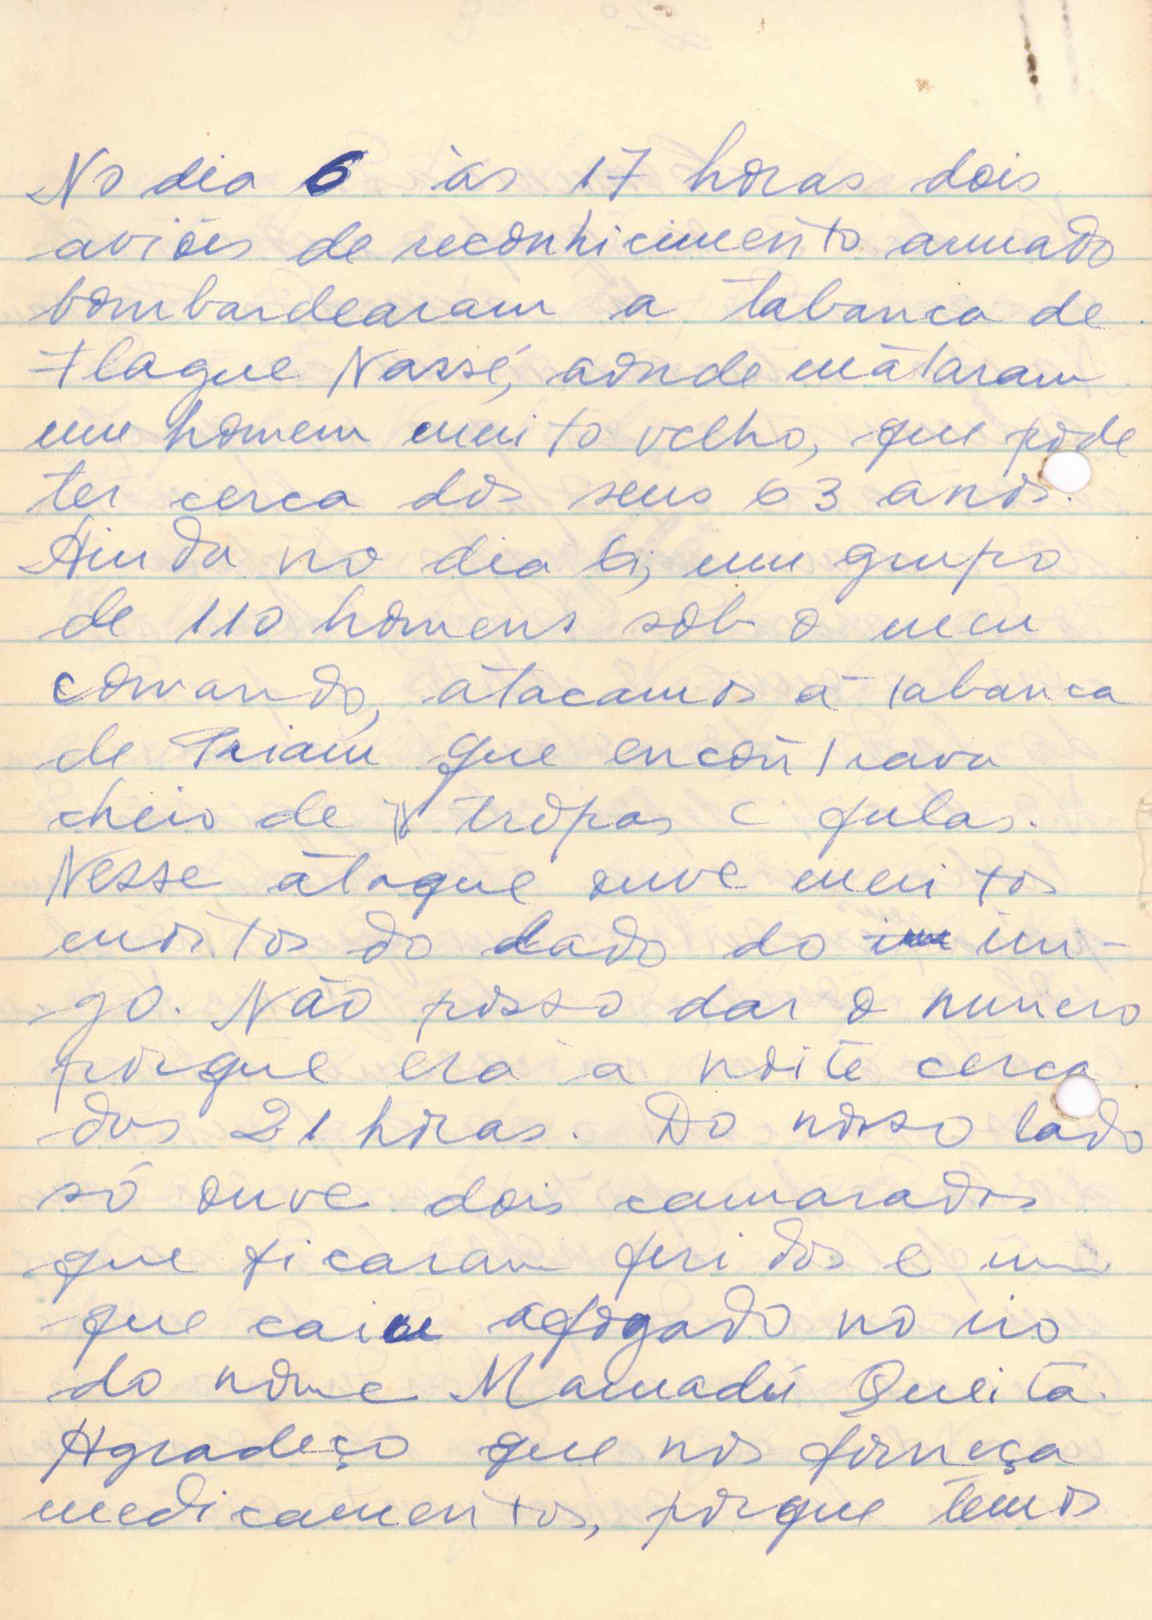 No dia 6 às 17 horas dois
aviões de reconhicimento armado
bombardearam a tabanca de
Flaque Nassé, aonde mataram
um homem muito velho, que pode
ter cerca dos seus 63 anos.
Ainda no dia 6, um grupo
de 110 homens sob o meu
comando, atacamos a tabanca
de Priame que encontrava
cheio de tropas e fulas.
Nesse ataque ouve muitos
mortos do lado do imi-
go. Não posso dar o numero
porque era a noite cerca
das 21 horas. Do nosso lado
só ouve dois camarados
que ficaram feridos e um
que caiu afogado no rio
do nome Mamadú Queita.
Agradeço que nos forneça
medicamentos, porque temos